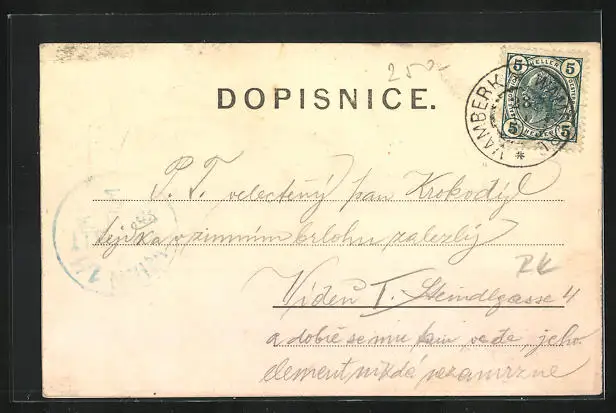 250
DOPISNICE.
5 HELLER 5
5 HELLER 5
VAMBERK WAMBERG
P. T. velectěný pan Krokodýl
týčka v zimním brlohu zalezlý
RK
Vídeň I. Steindlgasse 4
a dobře se mu tam vede, jeho
element nikdá nezamrzne